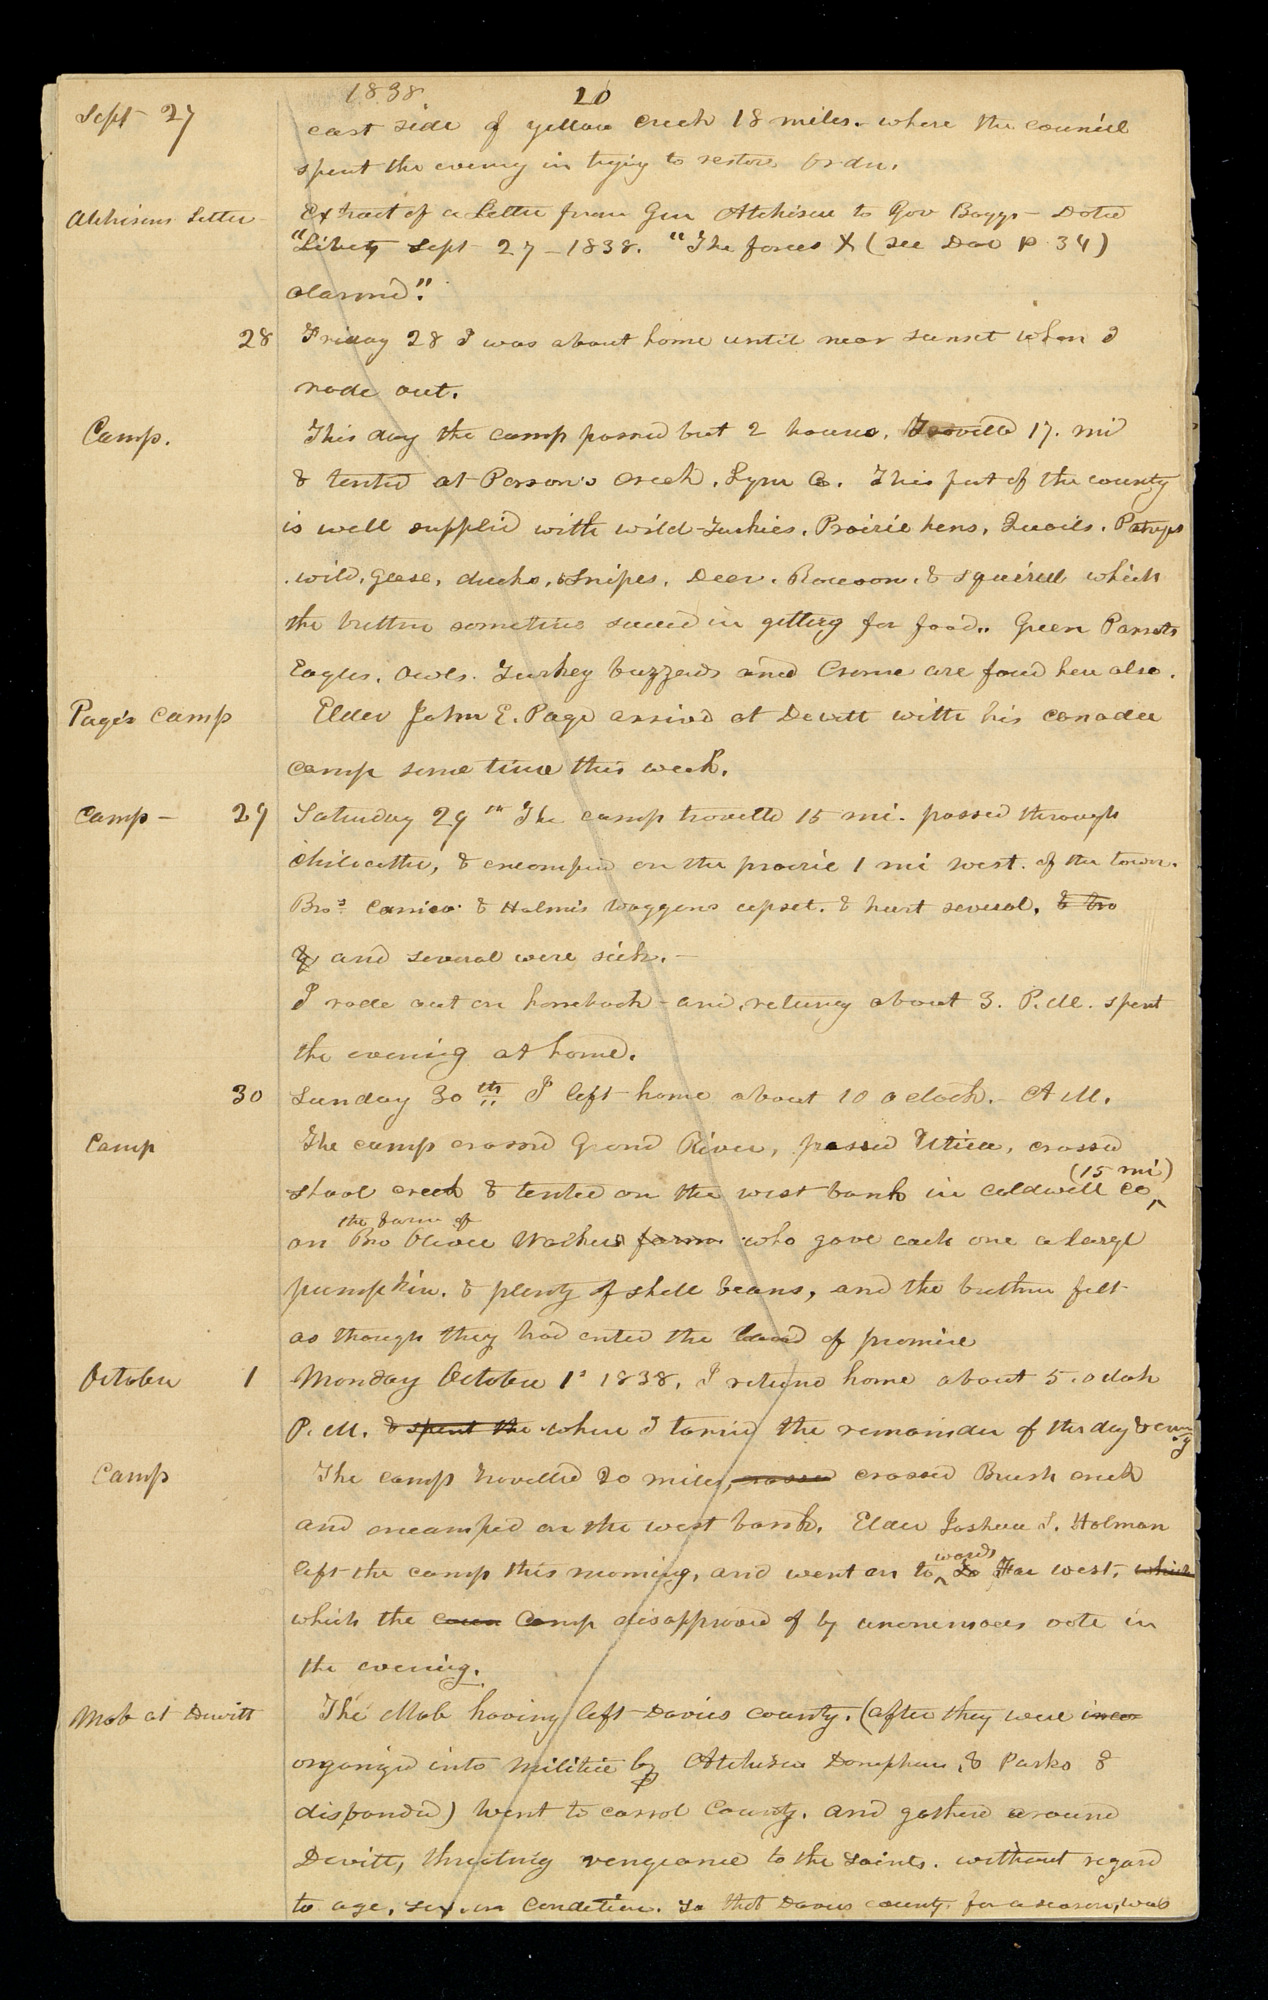 1838 20
Sept 27 east side of yellow creek 18 miles. where the council
spent the eveng in trying to restore order.
Atchisons Letter Extract of a Letter from Gen Atchison to Gov Boggs - Dated
"Liberty Sept 27 - 1838. "The forces X (see Doc p 34)
alarmed".
28 Friday 28 I was about home until near sunset when I
rode out.
Camp. This day the camp passed but 2 houses. Travelld 17. mi
& tented at Parson's creek. Lynn Co. This part of the county
is well supplied with wild Turkies. Prairie hens, Quails.
wild, geese, ducks, snipes, Deer. Racoon. & squirell which
the brethrn sometimes succed in getting for food.. Green Parrots
Eagles. Owls. Turkey buzzards and Crows are found here also.
Page's Camp Elder John E. Page arrived at Dewitt with his canada
camp some time this week.
Camp - 29 Saturday 29th The camp travelld 15 mi. passed through
chilicothe, & encamped on the prairie 1 mi west. of the town.
Bros. Carrico & Holmes waggons upset. & hurt several, & bro
& and several were sick. -
I rode out on horseback - and, returng about 3. P.M. spent
the evening at home.
30 Sunday 30th I left home about 10 o clock. - A M.
Camp The camp crossed Grand River, passed Utica, crossed
shoal creek & tented on the west bank in Caldwell Co, (15 mi)
on the farm of Bro Oliver Walkers farm who gave each one a large
pumpkin. & plenty of shell beans, and the brethrn felt
as though they had enterd the land of promise
October 1 Monday October 1st 1838, I returnd home about 5. oclock
P. M. & spent the where I tarried the remainder of the day & eveng
Camp The camp travelled 20 miles, crossed crossed Brush creek
and encamped on the west bank. Elder Joshua S. Holman
left the camp this morning, and went on towards to Far west, which
which the Camp disapproved of by unonemoees vote in
the evening.
Mob at Dewitt The Mob having left Davies county. (after they were
organized into Militia by Atchison Donephan, & Parks &
disbanded) went to carrol County. and gatherd around
Dewitt, threatning vengeance to the saints. without regard
to age, sex, or Condition. So that Davies county. for a season, was